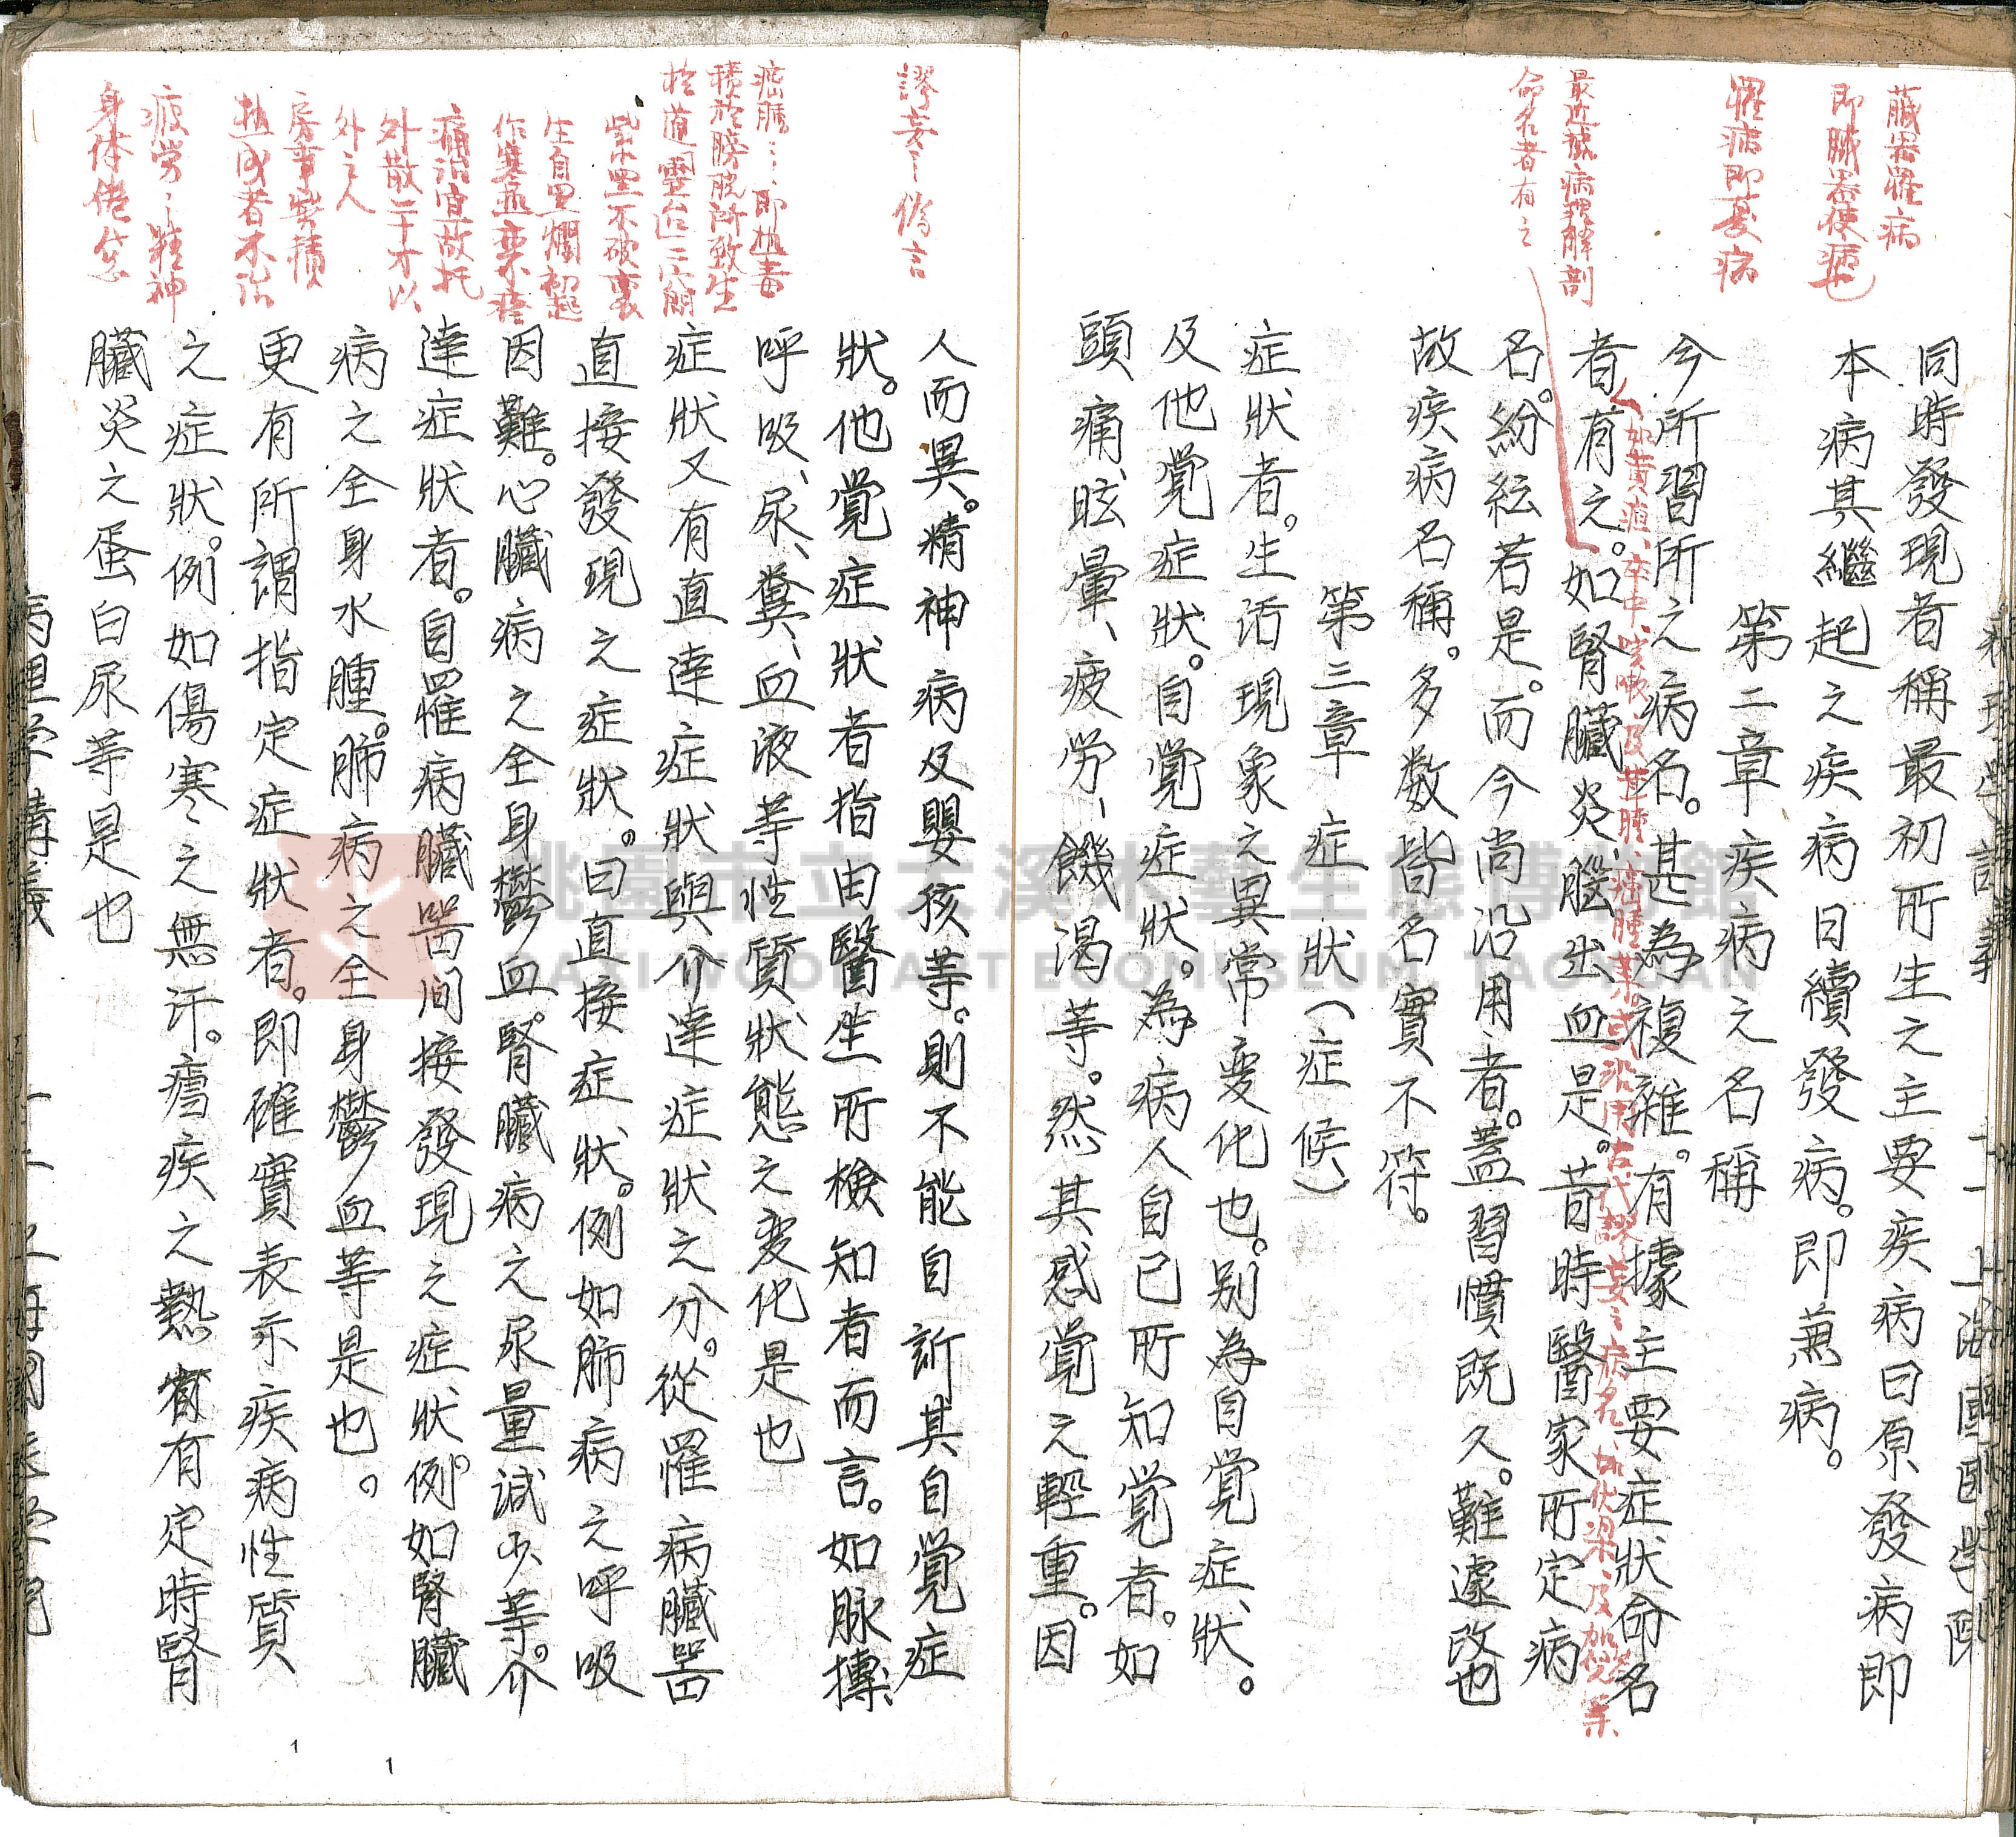 臟器罹病
即臟器使病也
罹病即憂病
最近據病理解剖
命名者有之
同時發現者稱最初所生之主要疾病曰原發病即
本病其繼起之疾病曰續發病。即兼病。
第二章疾病之名稱
今所習所之病名。甚為複雜。有據主要症狀命名
如黃疸、卒中、咳嗽、及甚腫、癌腫等。或沿用古代謬妄之病名、如伏梁、及
者有之。如腎臟炎、腦出血是。昔時醫家所定病
名。紛紜若是。而今尚沿用者。蓋習慣既久。難遽改也
故疾病名稱。多數皆名實不符。
第三章 症狀(症候)
症狀者。生活現象之異常变化也。别為自覚症狀。
及他覚症狀。自覚症狀。為病人自己所知覚者。如
頭痛、眩暈、疲労、饑渴等。然其感覚之輕重。因
謬妄〻偽言
癌腫〻即
積於膀胱所致生
於道靈台二穴間
紫黑不破裏
生自黑爛初起
作寒
痛治宜故托
外散二十才以
外之人
者不治
疲勞〻精神
身体倦怠
人而異。精神病及嬰孩等。則不能自訢其自覚症
狀。他覚症狀者指由醫生所檢知者而言。如脉搏、
呼吸、尿、糞、血液等性質狀態之変化是也
症狀又有直達症狀與介達症狀之分。從罹病臟器
直接發現之症狀。曰直接症狀。例如肺病之呼吸
因難。心臟病之全身鬱血。腎臟病之尿量減少等。介
達症狀者。自罹病臟器间接發現之症狀。例如腎臟
病之全身水腫。肺病之全身鬱血等是也。
更有所謂指定症狀者。即確實表示疾病性質
之症狀。例如傷寒之無汗。瘧疾之熱有定時腎
臟炎之蛋白尿等是也
病理学講義
桃園市立大溪木藝生態博物館
DAXI WOOD ART ECOMUSEUM, TAOYUAN
1
1